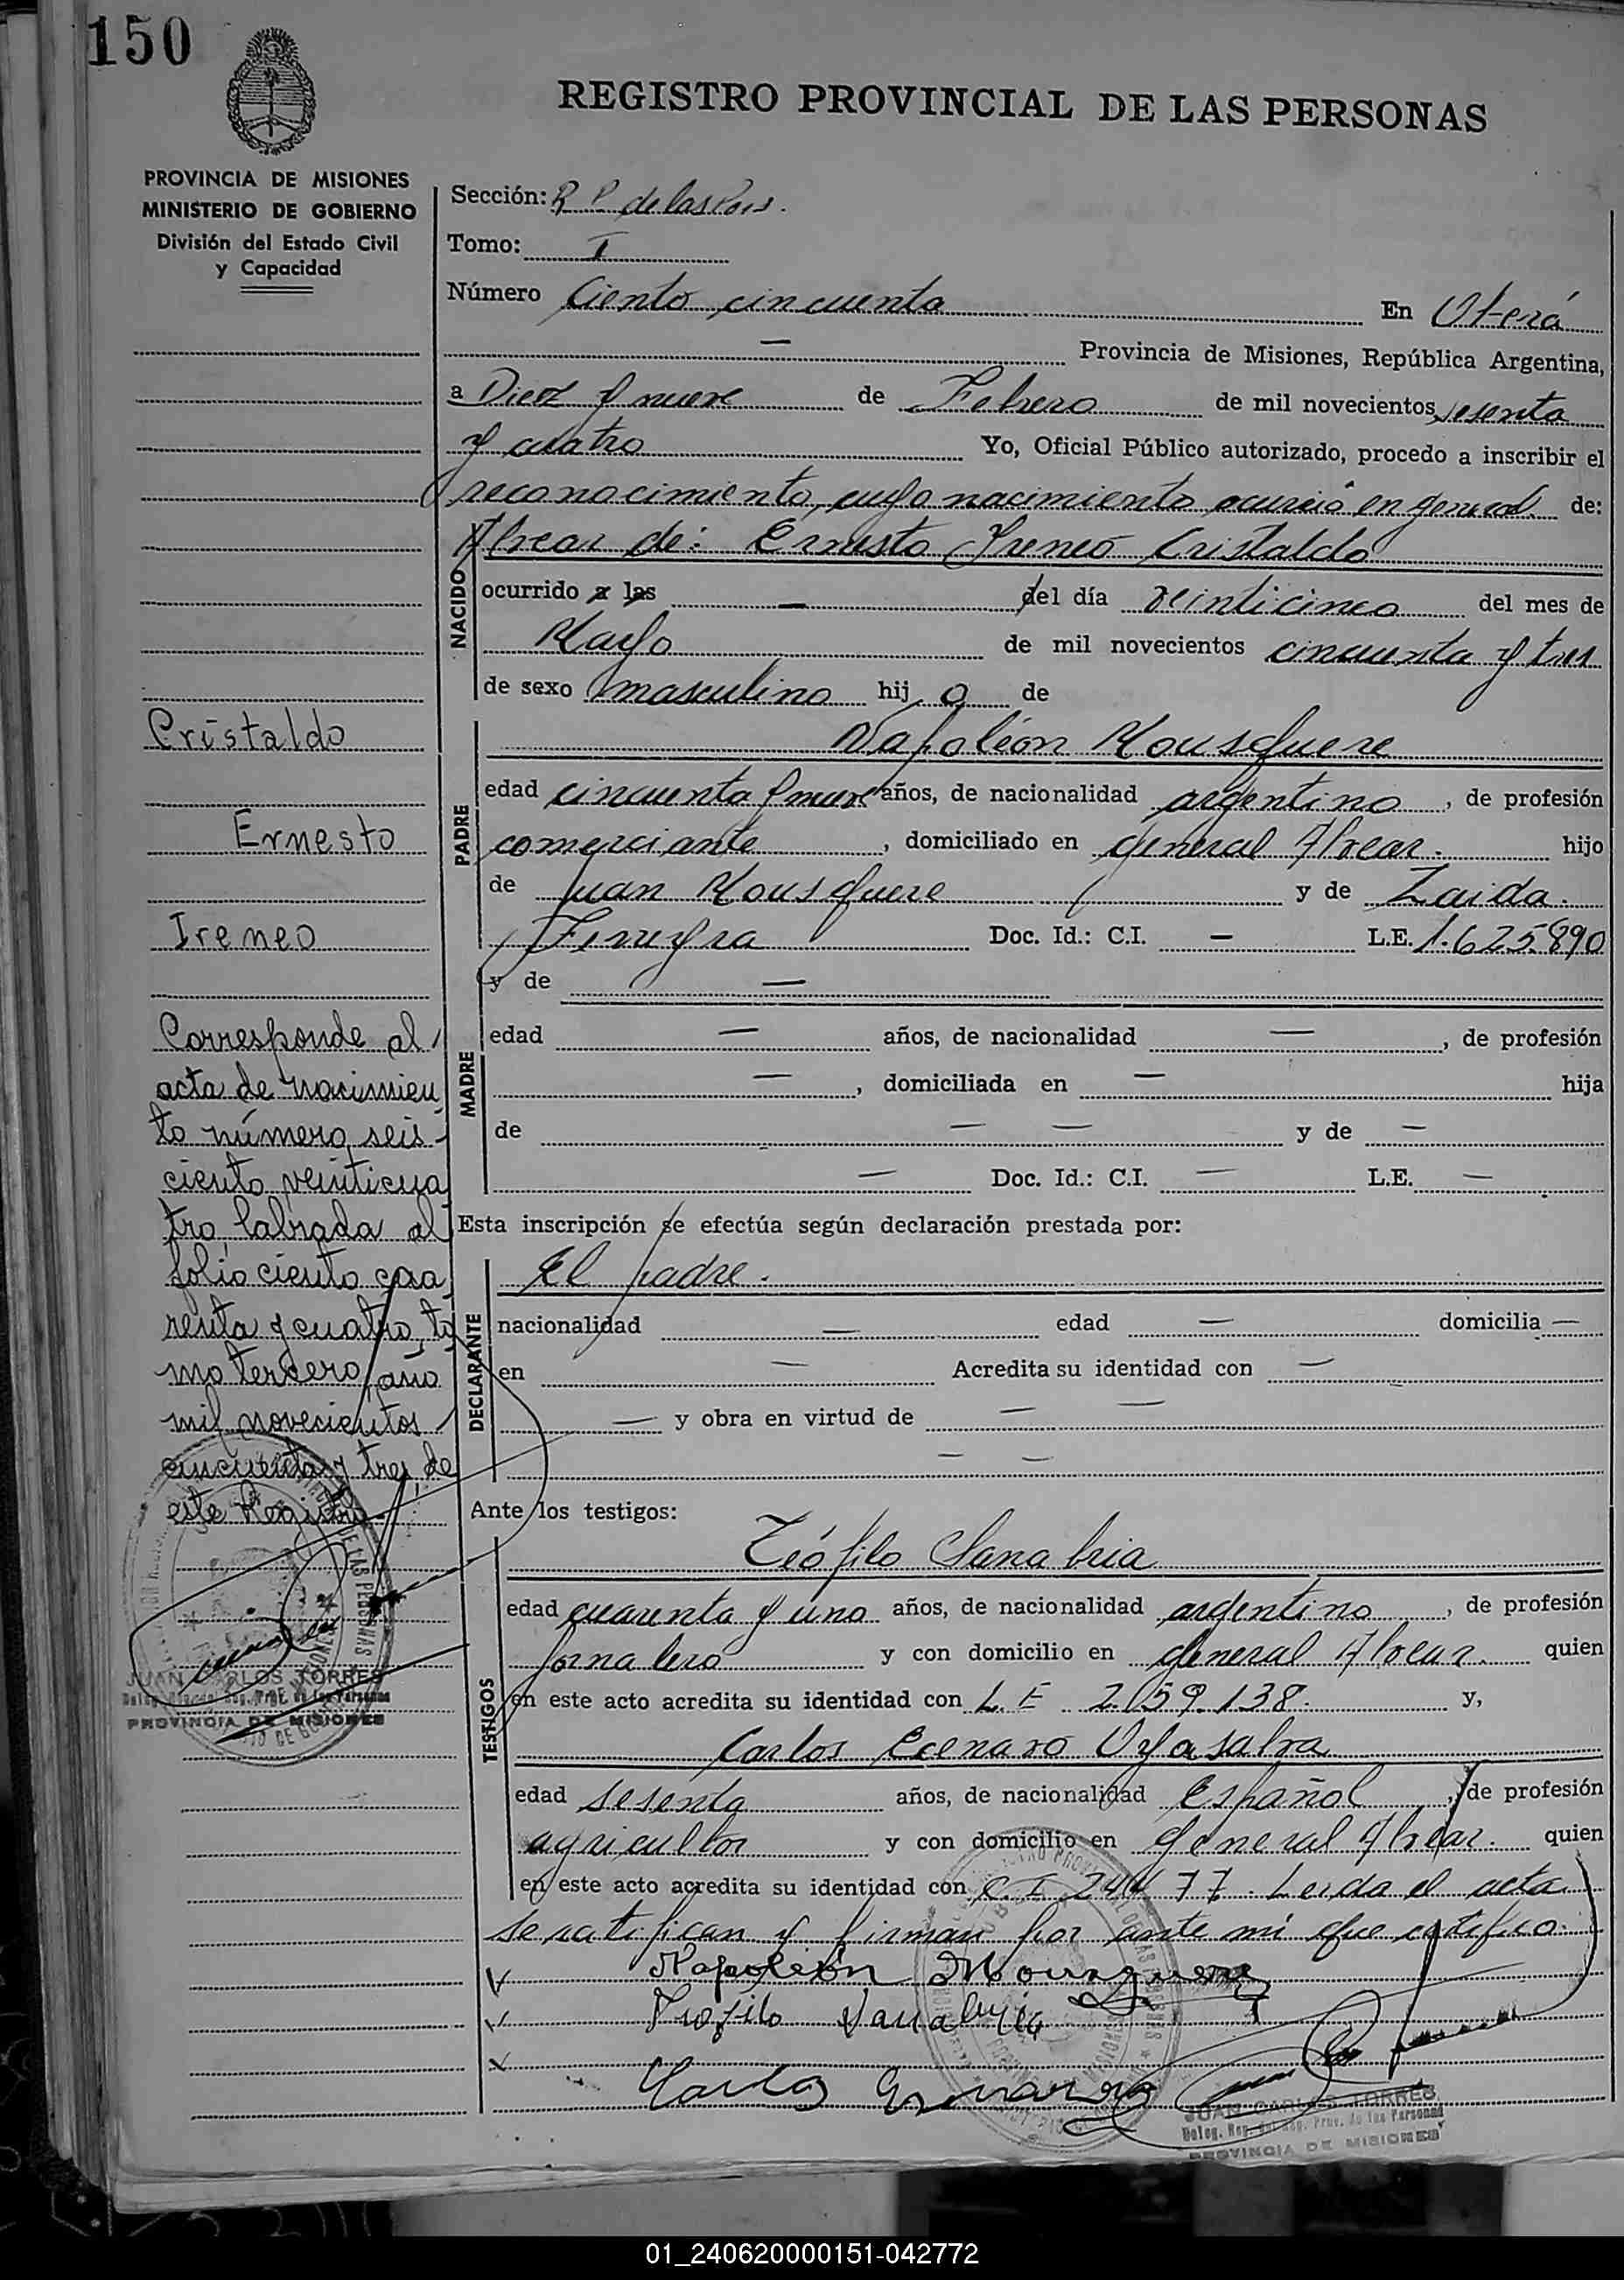 150
REGISTRO PROVINCIAL DE LAS PERSONAS
PROVINCIA DE MISIONES
MINISTERIO DE GOBIERNO
División del Estado Civil
y Capacidad
Sección: R P de las Pers.
Tomo: I
Número Ciento cincuenta En Oberá
— Provincia de Misiones, República Argentina,
a Diez y nueve de Febrero de mil novecientos sesenta
y cuatro Yo, Oficial Público autorizado, procedo a inscribir el
reconocimiento, cuyo nacimiento ocurrió en general de:
Alvear de: Ernesto Ireneo Cristaldo
NACIDO
ocurrido a las — del día veinticinco del mes de
Mayo de mil novecientos cincuenta y tres
de sexo masculino hij o de
PADRE
Napoleón Mousquere
edad cincuenta y nueve años, de nacionalidad argentino, de profesión
comerciante, domiciliado en general Alvear. hijo
de Juan Mousquere y de Zaida.
Ferreyra Doc. Id.: C.I. — L.E. 1.625.890
MADRE
y de —
edad — años, de nacionalidad —, de profesión
—, domiciliada en — hija
de — — y de —
— Doc. Id.: C.I. — L.E. —
Esta inscripción se efectúa según declaración prestada por:
DECLARANTE
El padre.
nacionalidad — edad — domicilia —
en — Acredita su identidad con —
— y obra en virtud de — —
— —
Ante los testigos:
TESTIGOS
Teófilo Sanabria
edad cuarenta y uno años, de nacionalidad argentino, de profesión
jornalero y con domicilio en general Alvear. quien
en este acto acredita su identidad con L.E 2.159.138. y,
Carlos Genaro
edad sesenta años, de nacionalidad Español, de profesión
agricultor y con domicilio en general Alvear. quien
en este acto acredita su identidad con C.I. Leida el acta
se ratifican y firman por ante mi que certifico.
Napoleón Mousquere
Teofilo Sanabria
Carlos
JUAN CARLOS TORRES
PROVINCIA DE MISIONES
Cristaldo
Ernesto
Ireneo
Corresponde al
acta de nacimien
to número seis
ciento veinticua
tro, labrada al
folio ciento cua
renta y cuatro, to
mo tercero, año
mil novecientos
cincuenta y tres, de
este Registro
JUAN CARLOS TORRES
PROVINCIA DE MISIONES
01_240620000151-042772